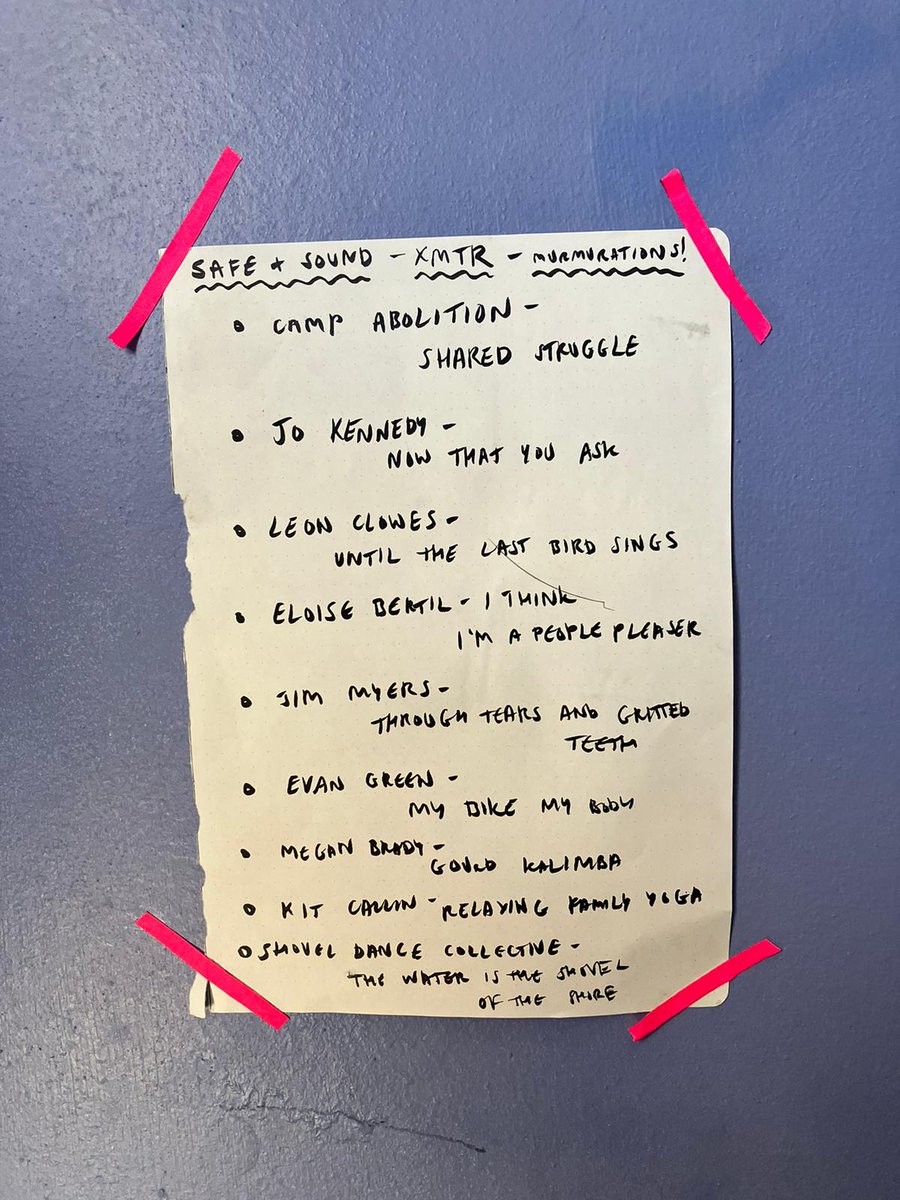 SAFE + SOUND - XMTR - MURMURATIONS!
• CAMP ABOLITION -
SHARED STRUGGLE
• JO KENNEDY -
NOW THAT YOU ASK
• LEON CLOWES -
UNTIL THE LAST BIRD SINGS
• ELOISE BERTIL - I THINK
I'M A PEOPLE PLEASER
• JIM MYERS -
THROUGH TEARS AND GRITTED
TEETH
• EVAN GREEN -
MY BIKE MY BODY
• MEGAN BRADY -
GOURD KALIMBA
• KIT CALLIN - RELAYING FAMILY YOGA
• SHOVEL DANCE COLLECTIVE -
THE WATER IS THE SHOVEL
OF THE SHORE